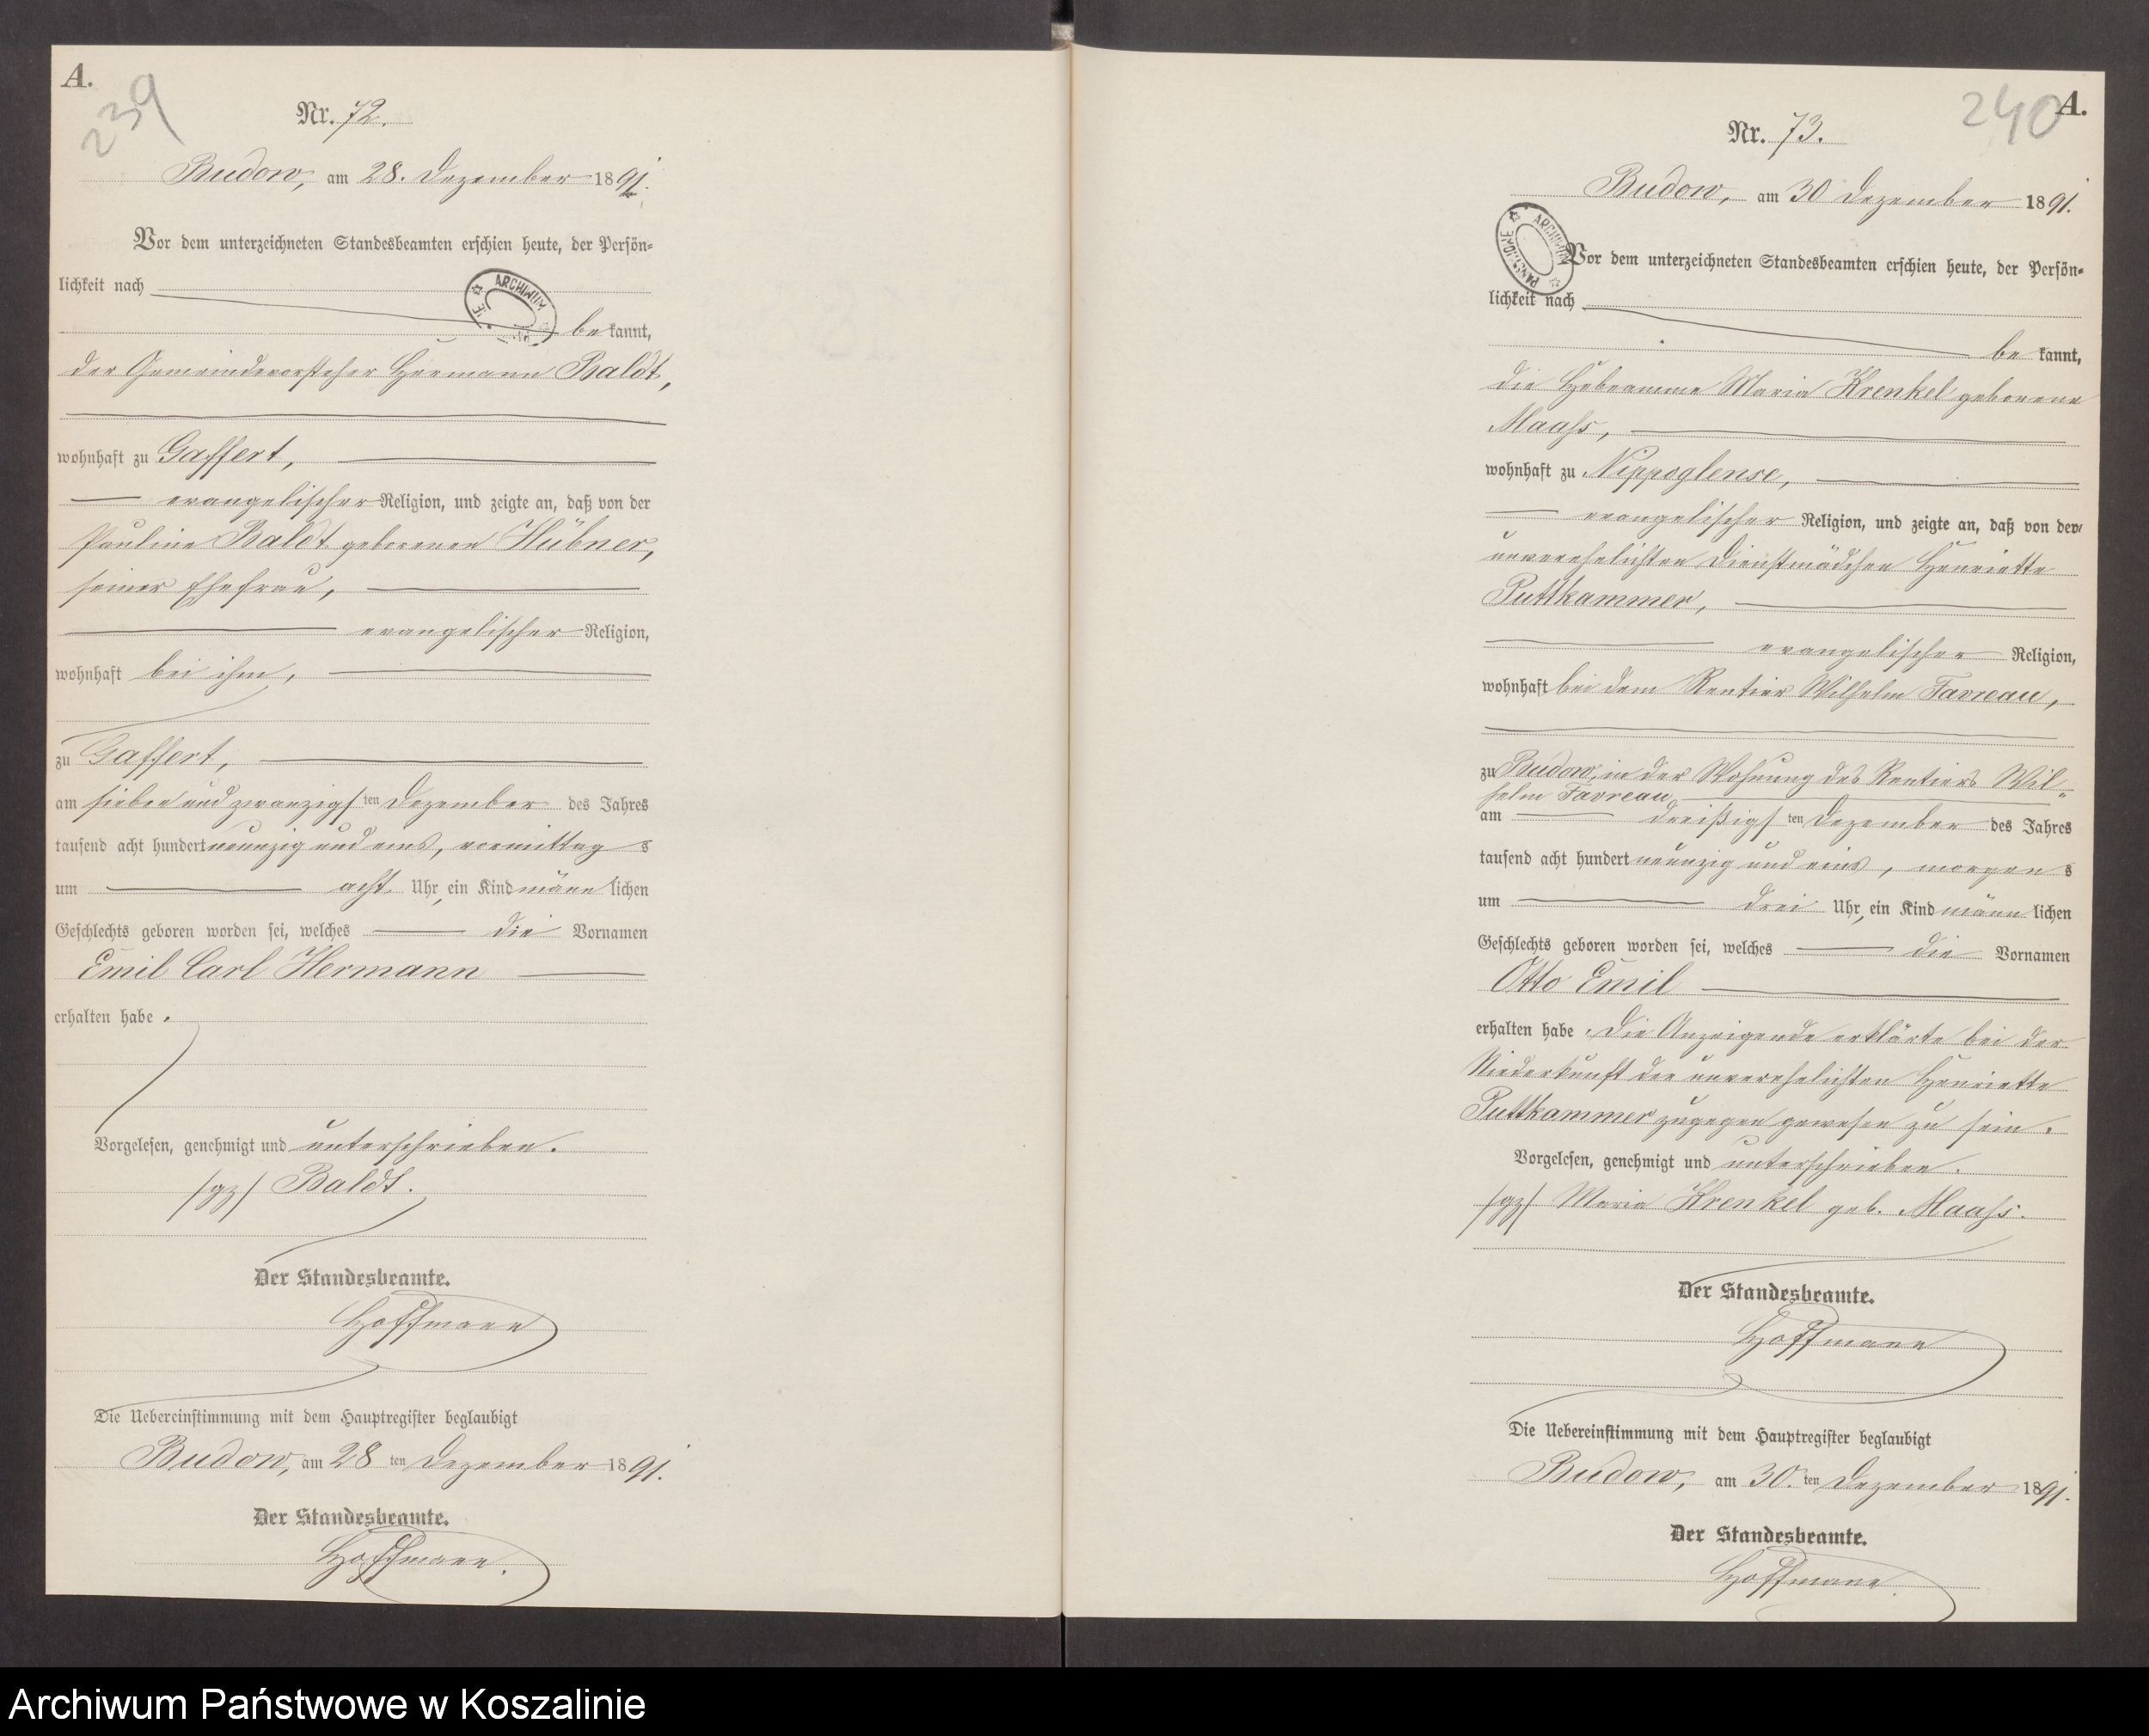 A.
239
Nr. 72.
Budow, am 28. Dezember 1891.
Vor dem unterzeichneten Standesbeamten erschien heute, der Persön-
lichkeit nach
ARCHIWUM
bekannt,
der Gemeindevorsteher Hermann Baldt,
wohnhaft zu Gaffert,
evangelischer Religion, und zeigte an, daß von der
Pauline Baldt geborenen Hübner,
seiner Ehefrau,
evangelischer Religion,
wohnhaft bei ihm,
zu Gaffert,
am sieben und zwanzigsten Dezember des Jahres
tausend acht hundert neunzig und eins, vormittags
um acht Uhr, ein Kind männlichen
Geschlechts geboren worden sei, welches die Vornamen
Emil Carl Hermann
erhalten habe.
Vorgelesen, genehmigt und unterschrieben.
/gz/ Baldt.
Der Standesbeamte.
Hoffmann
Die Uebereinstimmung mit dem Hauptregister beglaubigt
Budow, am 28 ten Dezember 1891.
Der Standesbeamte.
Hoffmann.
A.
240
Nr. 73.
Budow, am 30 Dezember 1891.
ARCHIWUM PAŃSTWOWE
Vor dem unterzeichneten Standesbeamten erschien heute, der Persön-
lichkeit nach
bekannt,
die Hebeamme Maria Krenkel geborene
Maaß,
wohnhaft zu Nippoglense,
evangelischer Religion, und zeigte an, daß von der
unverehelichten Dienstmädchen Henriette
Puttkammer,
evangelischer Religion,
wohnhaft bei dem Rentier Wilhelm Favreau,
zu Budow, in der Wohnung des Rentiers Wil-
helm Favreau
am dreißigsten Dezember des Jahres
tausend acht hundert neunzig und eins, morgens
um drei Uhr, ein Kind männlichen
Geschlechts geboren worden sei, welches die Vornamen
Otto Emil
erhalten habe. Die Anzeigende erklärte bei der
Niederkunft der unverehelichten Henriette
Puttkammer zugegen gewesen zu sein.
Vorgelesen, genehmigt und unterschrieben.
/gz/ Maria Krenkel geb. Maaß.
Der Standesbeamte.
Hoffmann
Die Uebereinstimmung mit dem Hauptregister beglaubigt
Budow, am 30. ten Dezember 1891.
Der Standesbeamte.
Hoffmann.
Archiwum Państwowe w Koszalinie